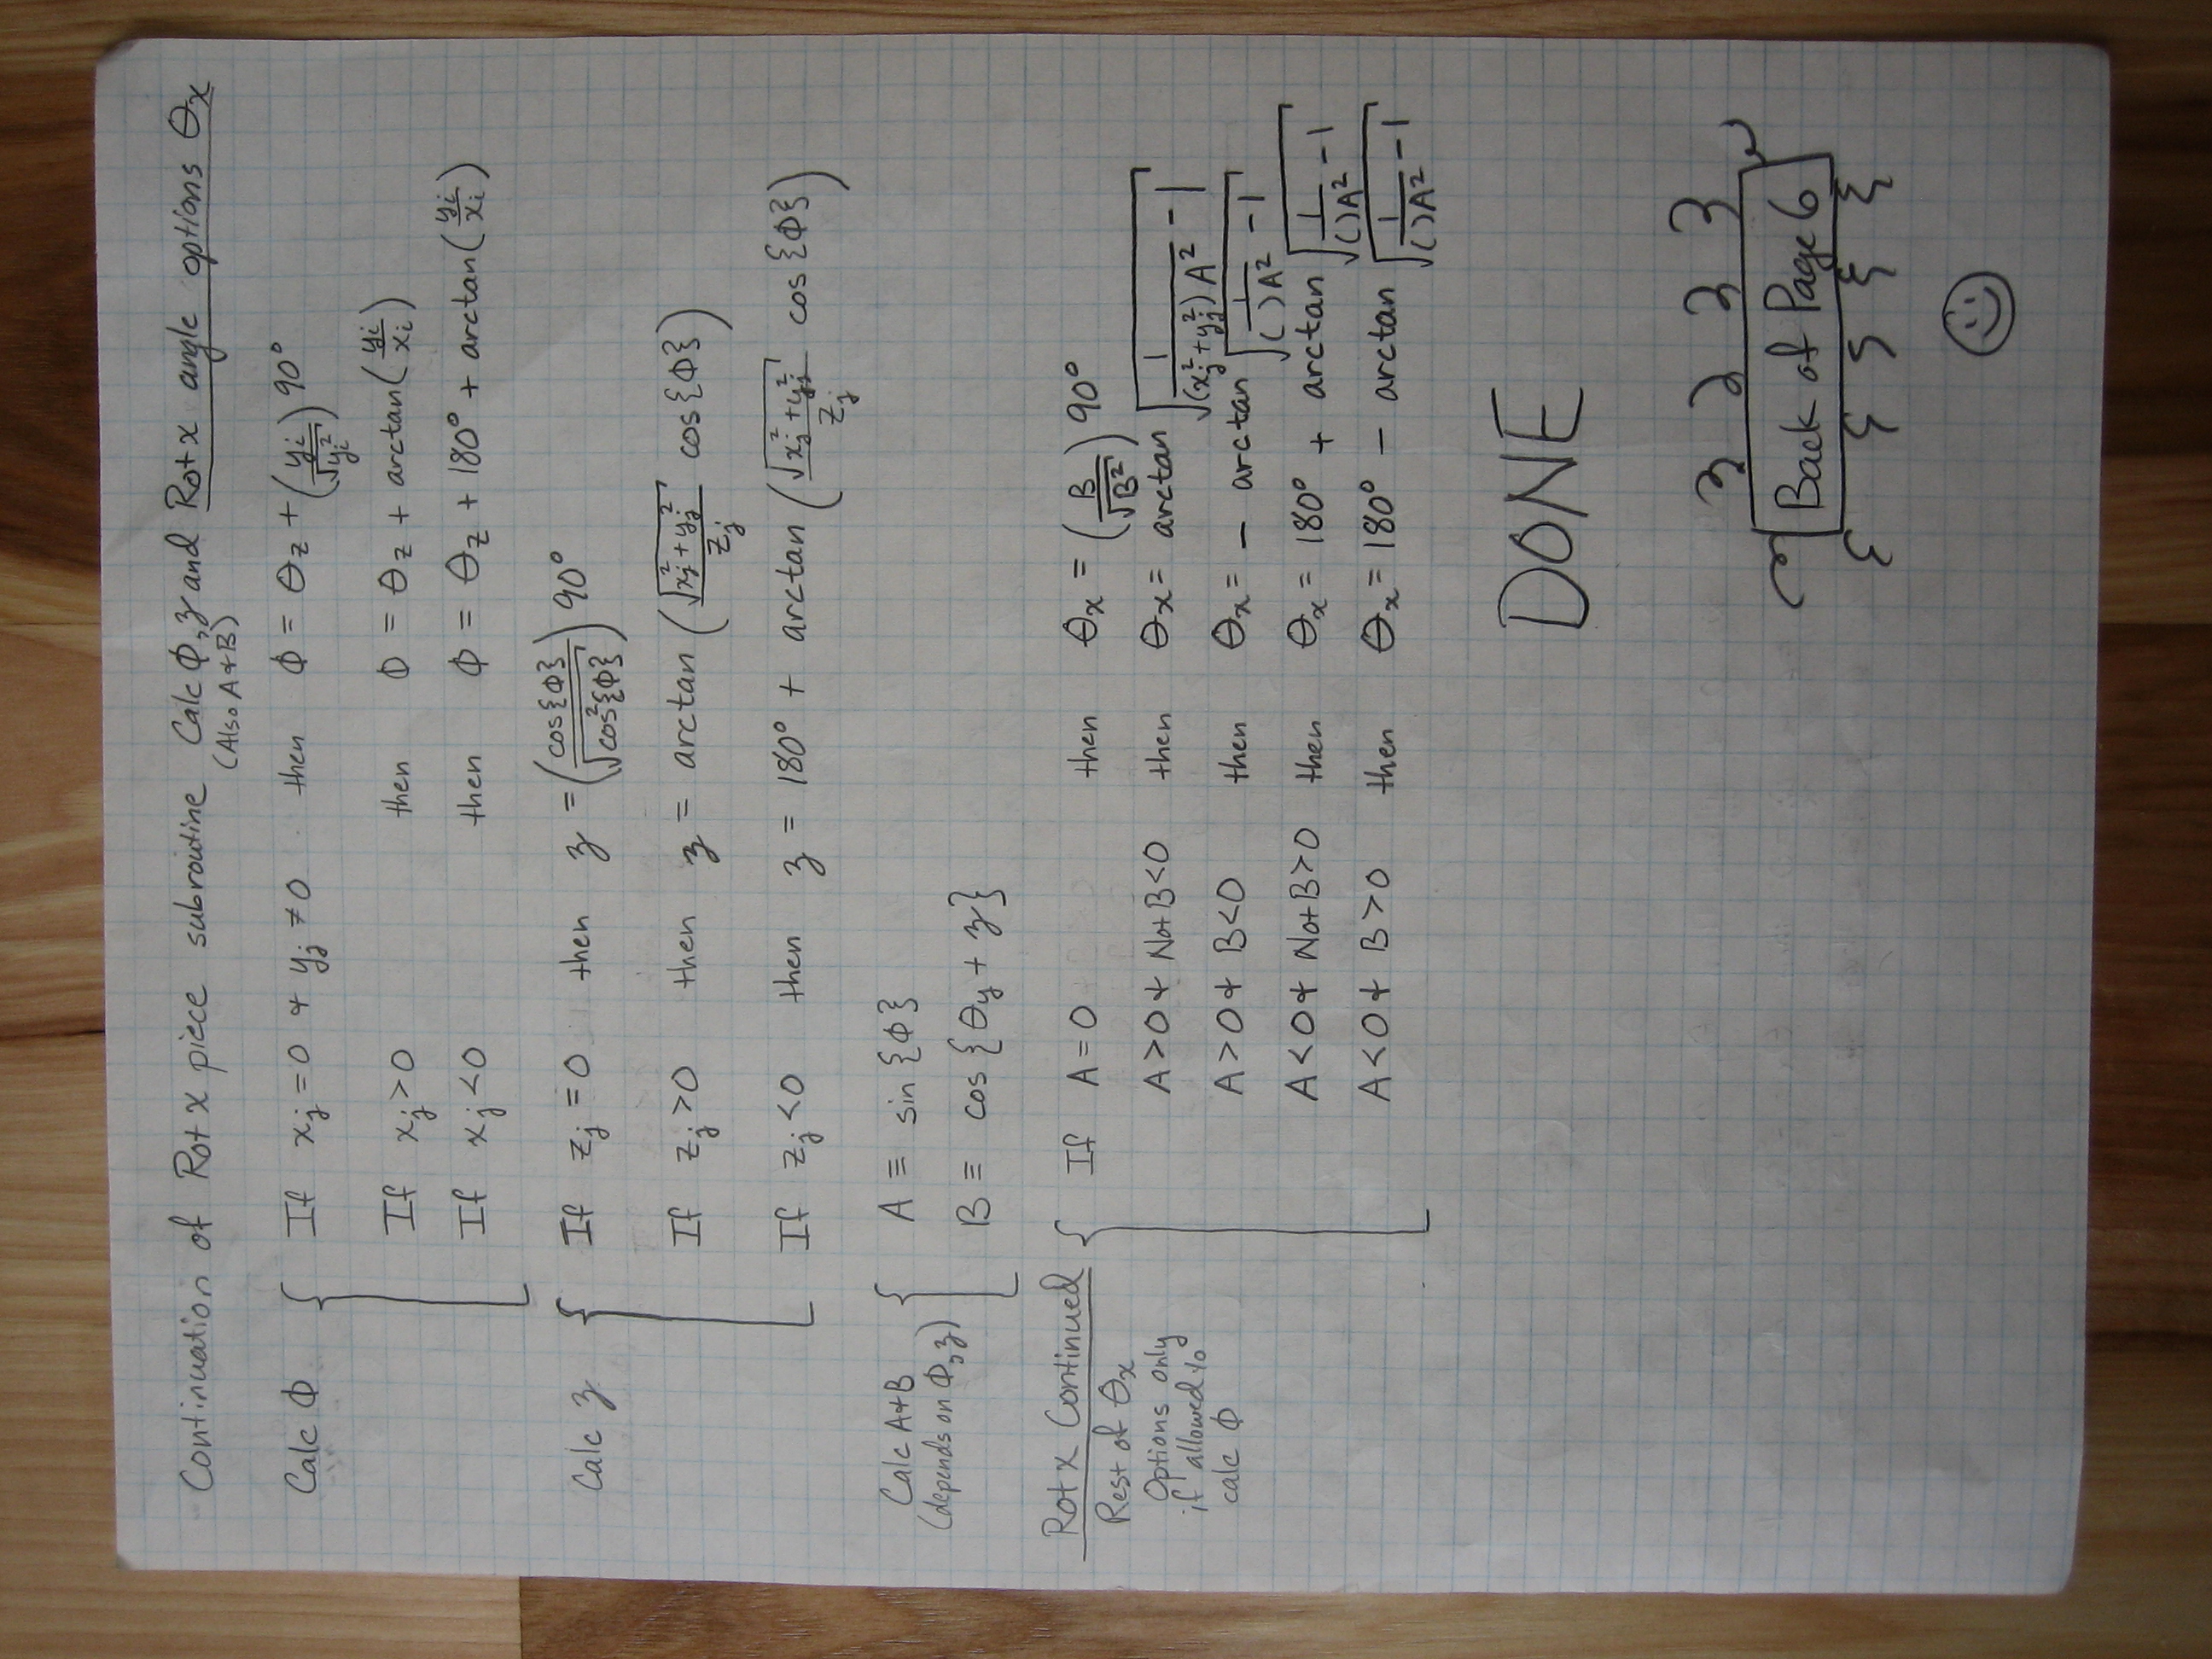 Continuation of Rotx piece subroutine Calc Φ, z and Rotx angle options θx
(Also A+B)
Calc Φ { If xj = 0 + yj ≠ 0 then Φ = θz + (yi/√yi²) 90°
If xj > 0 then Φ = θz + arctan(yi/xi)
If xj < 0 then Φ = θz + 180° + arctan(yi/xi)
Calc z { If zj = 0 then z = (cos{Φ}/√cos²{Φ}) 90°
If zj > 0 then z = arctan(√xj²+yj²/zj cos{Φ})
If zj < 0 then z = 180° + arctan(√xj²+yj²/zj cos{Φ})
Calc A+B { A ≡ sin{Φ}
(depends on Φ, z) B ≡ cos{θy + z}
Rotx Continued { If A = 0 then θx = (B/√B²) 90°
Rest of θx A > 0 + Not B < 0 then θx = arctan √(1/(xj²+yj²)A² - 1)
Options only A > 0 + B < 0 then θx = - arctan √(1/( )A² - 1)
if allowed to A < 0 + Not B > 0 then θx = 180° + arctan √(1/( )A² - 1)
calc Φ A < 0 + B > 0 then θx = 180° - arctan √(1/( )A² - 1)
DONE
Back of Page 6